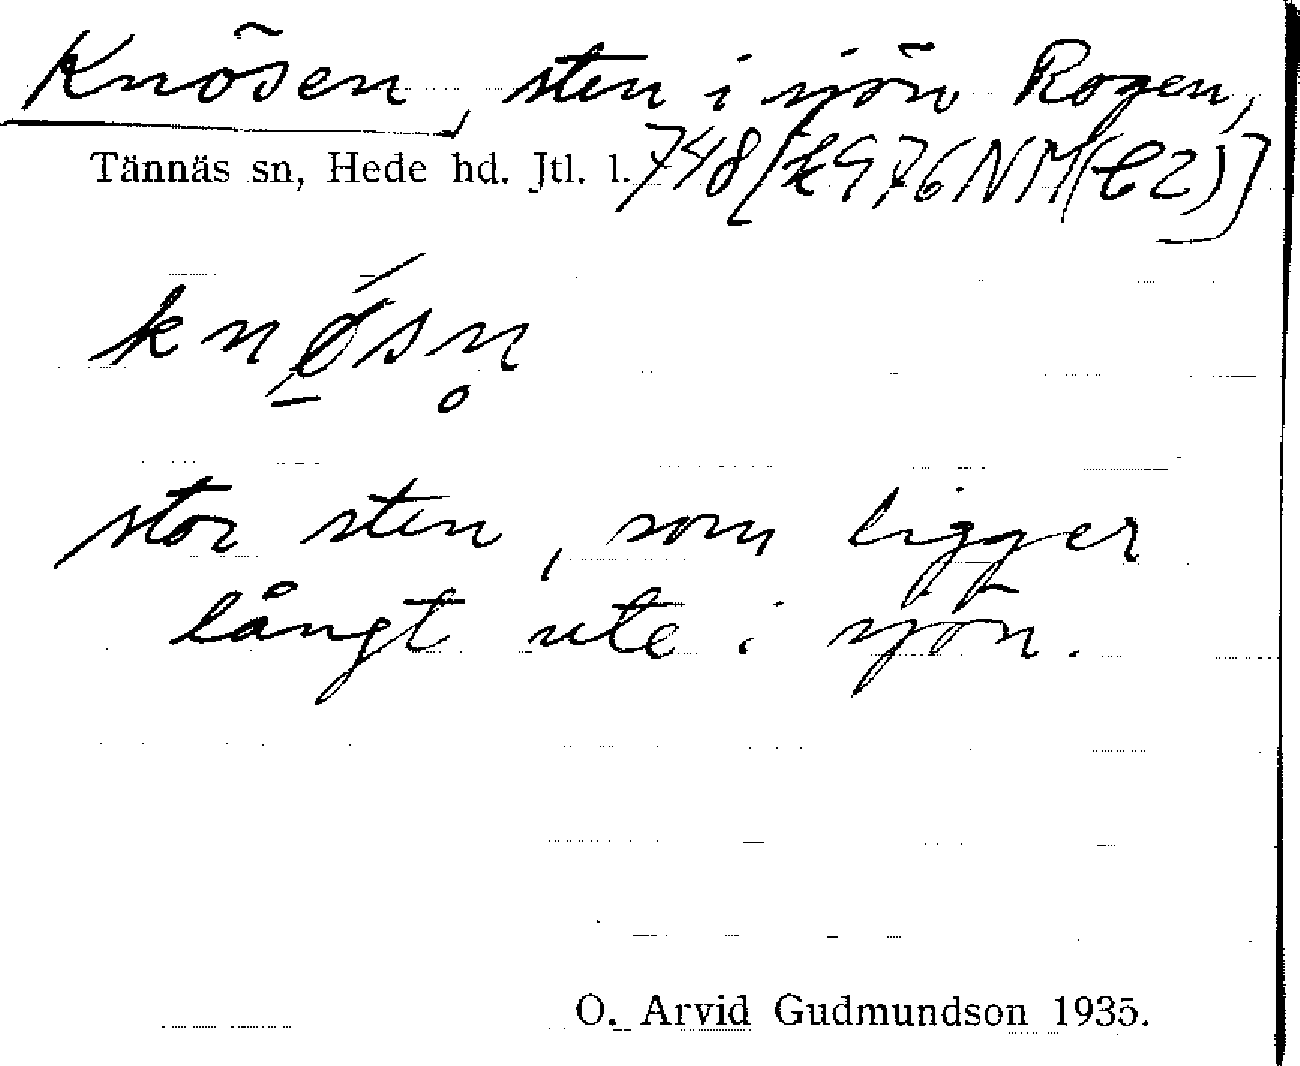 Knösen, sten i sjön Rogen,
Tännäs sn, Hede hd. Jtl. l. 748
knǿ̱sn̥
stor sten, som ligger
långt ute i sjön.
O. Arvid Gudmundson 1935.